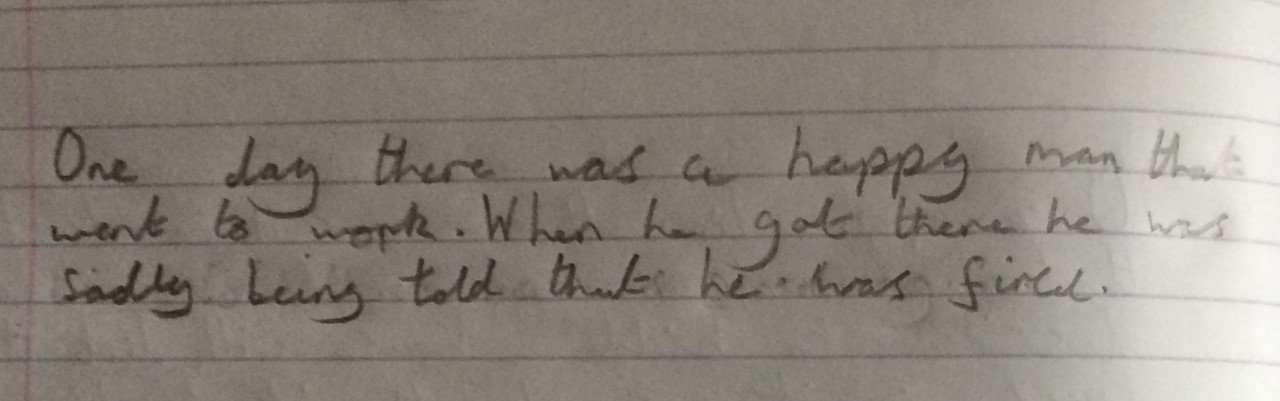 One day there was a happy man that
went to work. When he got there he was
sadly being told that he was fired.